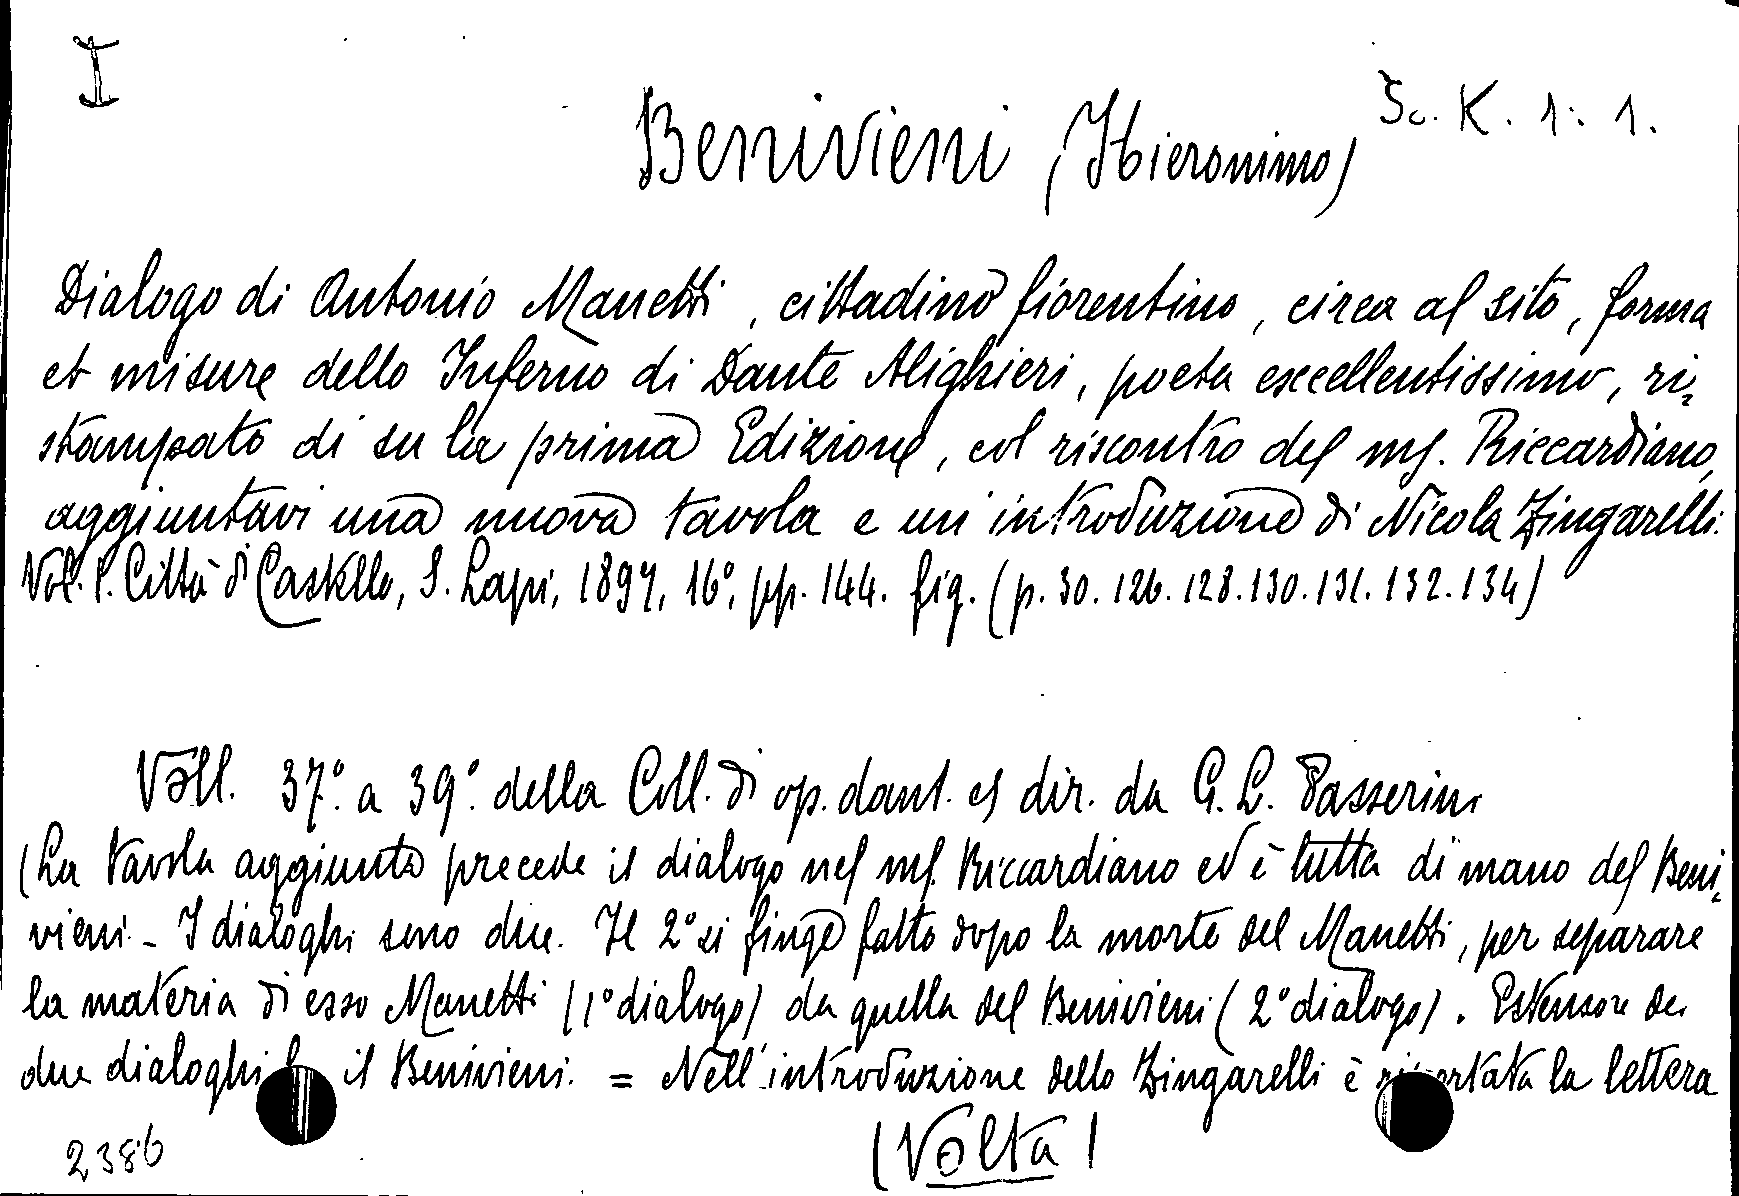 I
Sc. K. 1: 1.
Benivieni (Hieronimo)
Dialogo di Antonio Manetti, cittadino fiorentino, circa al sito, forma
et misure dello Inferno di Dante Alighieri, poeta excellentissimo, ri-
stampato di su la prima Edizione, col riscontro del ms. Riccardiano,
aggiuntavi una nuova tavola e un'introduzione di Nicola Zingarelli.
Vol. I. Città di Castello, S. Lapi, 1897, 16°, pp. 144. fig. (p. 30. 126. 128. 130. 131. 132. 134)
Voll. 37° a 39° della Coll. di op. dant. dir. da G. L. Passerini
(La tavola aggiunta precede il dialogo nel ms. Riccardiano ed è tutta di mano del Beni-
vieni. - I dialoghi sono due. Il 2° si finge fatto dopo la morte del Manetti, per separare
la materia di esso Manetti (1° dialogo) da quella del Benivieni (2° dialogo). Estensore dei
due dialoghi il Benivieni. = Nell'introduzione dello Zingarelli è riportata la lettera
(Volta)
2386